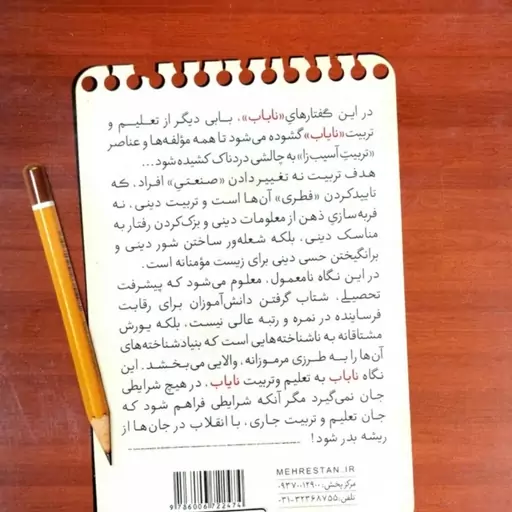 در این گفتارهایِ «ناباب»، بـابی دیگر از تعلیـم و
تربیت «نایاب» گشوده می‌شود تا همه مؤلفه‌ها و عناصر
«تربیتِ آسیب‌زا» به چالشی دردناک کشیده شود...
هدف تربیت نه تغییر دادن «صنعتیِ» افراد، که
تاییدکردن «فطری» آن‌ها است و تربیت دینی، نه
فربه‌سازیِ ذهن از معلومات دینی و بزک‌کردن رفتار به
مناسک دینی، بلکه شعله‌ور ساختن شور دینی و
برانگیختن حسی دینی برای زیست مؤمنانه است.
در این نگاه نامعمول، معلوم می‌شود که پیشرفت
تحصیلی، شتاب گرفتن دانش‌آموزان برای رقابت
فرساینده در نمره و رتبه عالی نیست، بلکه یورش
مشتاقانه به ناشناخته‌هایی است که بنیادشناخته‌های
آن‌ها را به طرزی مرموزانه، والایی می‌بخشد. این
نگاه ناباب به تعلیم وتربیت نایاب، در هیچ شرایطی
جان نمی‌گیرد مگر آنکه شرایطی فراهم شود که
جان تعلیم و تربیت جاری، با انقلاب در جان‌ها از
ریشه بدر شود!
MEHRESTAN.IR
مرکز پخش: ۰۹۳۷۰۰۱۴۹۰۰
تلفن: ۳۲۳۶۸۷۵۵-۰۳۱
9786006722474